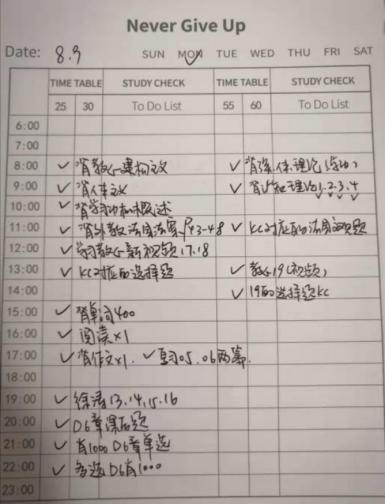 Never Give Up
Date: 8.9 SUN MON TUE WED THU FRI SAT
TIME TABLE STUDY CHECK TIME TABLE STUDY CHECK
25 30 To Do List 55 60 To Do List
6:00
7:00
8:00 ✓ 背教心建构主义 ✓
9:00 ✓ 背人本主义 ✓ 1.2.3.4
10:00 ✓ 背学习动机概述
11:00 ✓ 背外教 P43-48 ✓ KC对应的
12:00 ✓ 学习教心 视频17.18
13:00 ✓ KC对应的选择题 ✓ 教心19(视频)
14:00 ✓ 19的选择题KC
15:00 ✓ 背单词400
16:00 ✓ 阅读x1
17:00 ✓ 背作文x1. ✓ 05.06两篇.
18:00
19:00 ✓ 徐涛13.14.15.16
20:00 ✓ D6章课后题
21:00 ✓ 肖1000 D6章单选
22:00 ✓ 多选D6肖1000
23:00